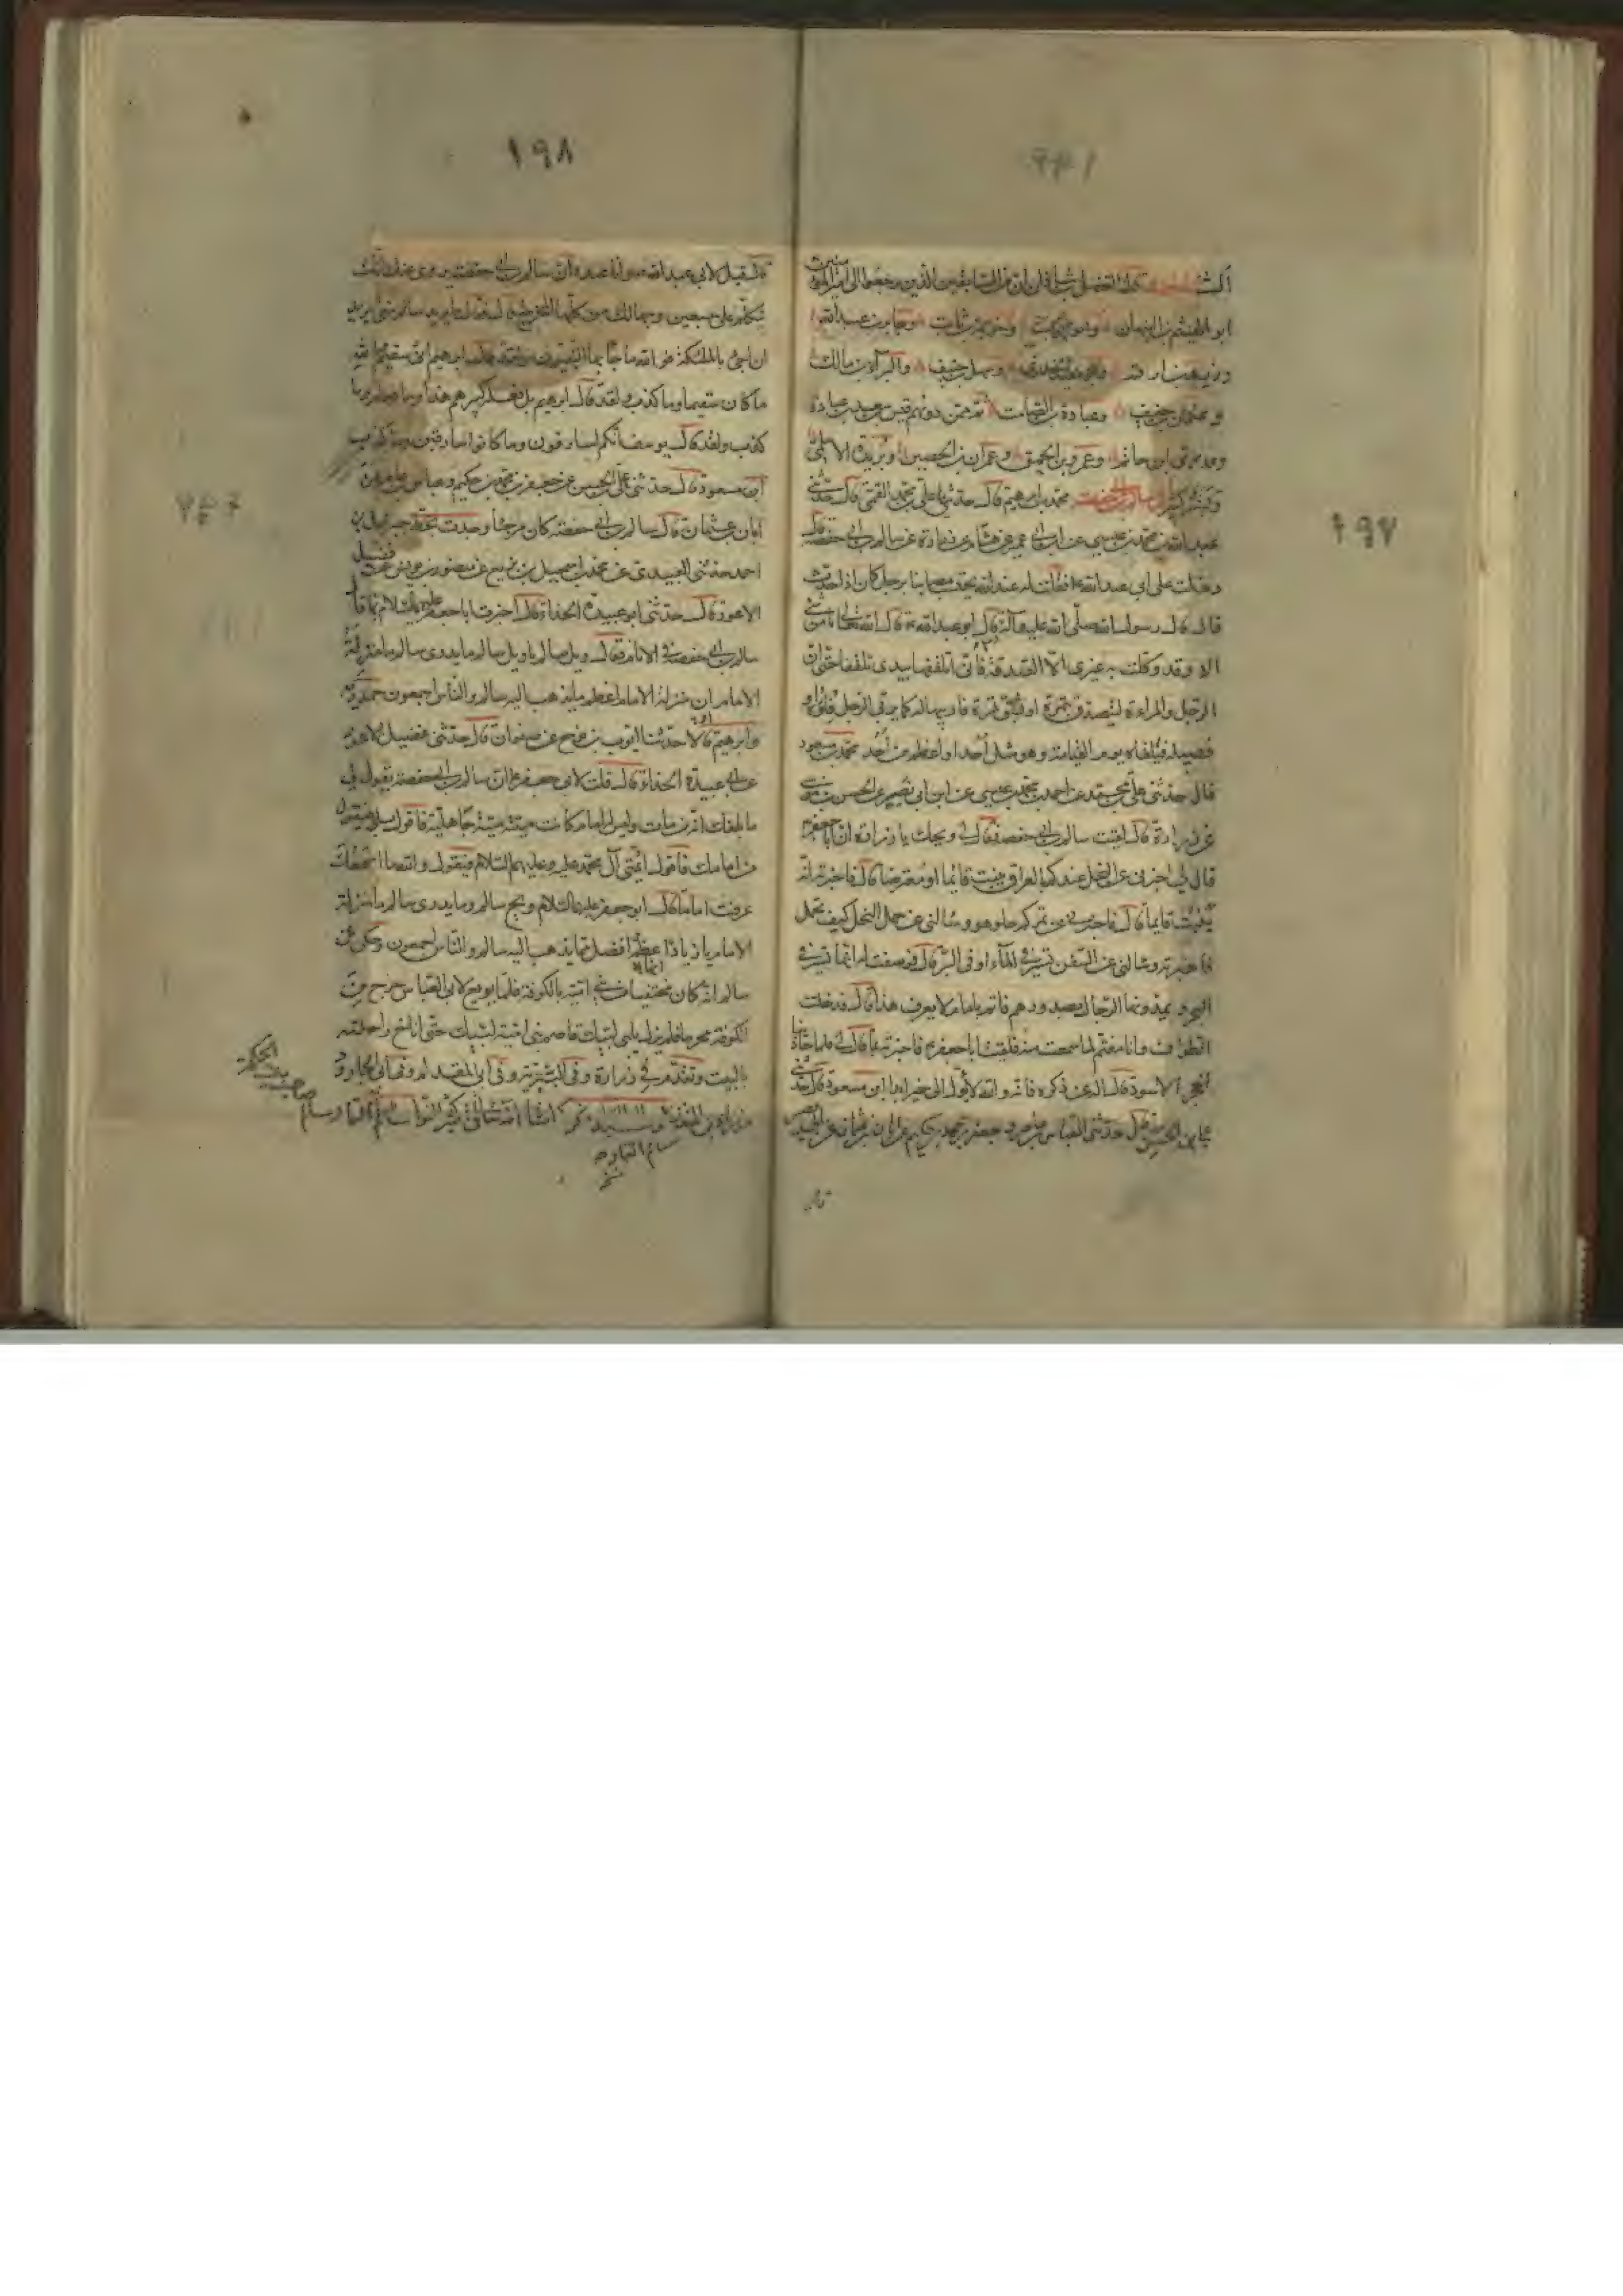 ١٩٧
قال الفضل بن شاذان ان من السابقين الذين رجعوا الى امير المؤمنين
ابو الهيثم بن التيهان وابو ايوب وخزيمة بن ثابت وجابر بن عبدالله
وزيد بن ارقم وابو سعيد الخدرى وسهل بن حنيف والبرآء بن مالك
وعثمان بن حنيف وعبادة بن الصامت ثم ممن دونهم قيس بن سعد بن عبادة
وعدى بن حاتم وعمرو بن الحمق وعمران بن الحصين وبريدة الاسلمى
وبشر كثير سالم بن ابى حفصة محمد بن ابراهيم قال حدثنى على بن محمد القمى قال حدثنى
عبدالله بن محمد بن عيسى عن ابن ابى عمير عن هشام عن زرارة عن سالم بن ابى حفصة قال
دخلت على ابى عبدالله فقلت له عند الله نحتسب مصابنا برجل كان اذا حدث
قال قال رسول الله صلى الله عليه وآله قال ابو عبدالله قال الله تعالى ما من شئ
الا وقد وكلت به غيرى الا الصدقة فانى اتلقفها بيدى تلقفا حتى ان
الرجل والمراءة ليتصدق بتمرة او بشق تمرة فاربيها له كما يربى الرجل فلوه او
فصيله فيلقاه يوم القيامة وهو مثل احد او اعظم من احد محمد بن مسعود
قال حدثنى على بن محمد عن احمد بن محمد بن عيسى عن ابن ابى نصر عن الحسن بن موسى
عن زرارة قال لقيت سالم بن ابى حفصة فقال لى ويحك يا زرارة ان ابا جعفر
قال لى اخبرنى عن النخل عندكم بالعراق ينبت قائما او معترضا قال فاخبرته انه
ينبت قايما قال فاخبرنى عن تمركم حلو هو وسالنى عن حمل النخل كيف يحمل
فاخبرته وسالنى عن السفن تسير فى الماء او فى البر قال فوصفت له انها تسير فى
البحر ويمدونها الرجال بصدورهم فاتم بامام لا يعرف هذا قال فدخلت
الطواف وانا مغتم لما سمعت منه فلقيت ابا جعفر فاخبرته بما قال لى فلما حاذينا
الحجر الاسود قال اله عن ذكره فانه والله لا يؤل الى خير ابدا ابن مسعود قال حدثنى
على بن الحسن قال حدثنى العباس بن عامر وجعفر بن محمد بن حكيم عن ابان بن عثمان عن ابى بصير
قال
١٩٨
قال قيل لابى عبدالله وانا عنده ان سالم بن ابى حفصة يروى عنك انك
تكلم على سبعين وجها لك من كلها المخرج قال فقال ما يريد سالم منى ايريد
ان اجئ بالملئكة فوالله ما جاء بها النبيون ولقد قال ابراهيم انى سقيم والله
ما كان سقيما وما كذب ولقد قال ابراهيم بل فعله كبيرهم هذا وما فعله وما
كذب ولقد قال يوسف انكم لسارقون وما كانوا سارقين وما كذب
ابن مسعود قال حدثنى على بن الحسن عن جعفر بن محمد بن حكيم وعباس بن عامر عن
ابان بن عثمان قال سالم بن ابى حفصة كان مرجئا وجدت بخط جبرئيل بن
احمد حدثنى العبيدى عن محمد بن اسمعيل بن بزيع عن منصور بن يونس عن فضيل
الاعور قال حدثنى ابو عبيدة الحذاء قال اخبرت ابا جعفر عليه السلام بما قال
سالم بن ابى حفصة فى الامام فقال ويل سالم يا ويل سالم ما يدرى سالم ما منزلة
الامام ان منزلة الامام اعظم مما يذهب اليه سالم والناس اجمعون حمدويه
وابراهيم قالا حدثنا ايوب بن نوح عن صفوان قال حدثنى فضيل الاعور
عن ابى عبيدة الحذاء قال قلت لابى جعفر ان سالم بن ابى حفصة يقول لى
ما بلغك انه من مات وليس له امام كانت ميتته ميتة جاهلية فاقول بلى فيقول
من امامك فاقول ائمتى آل محمد عليه وعليهم السلام فيقول والله ما اسمعك
عرفت اماما قال ابو جعفر عليه السلام ويح سالم وما يدرى سالم ما منزلة
الامام يا زياد اعظم افضل مما يذهب اليه سالم والناس اجمعون وحكى عن
سالم انه كان مختفيا من بنى امية بالكوفة فلما بويع لابى العباس خرج من
الكوفة محرما فلم يزل يلبى لبيك قاصم بنى امية لبيك حتى اناخ راحلته
بالبيت وتقدم فى زرارة وفى البترية وفى ابى المقدام وفى ابى الجارود
ان شاء الله تعالى كثير النوا سالم
سالم التمار
صاحب بيت الحكمة